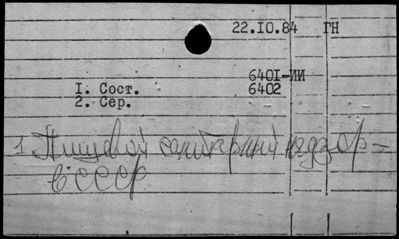 22.IO.84 ГН
6401-ИИ
I. Сост. 6402
2. Сер.
1 Пищевой санитарный надзор -
в СССР